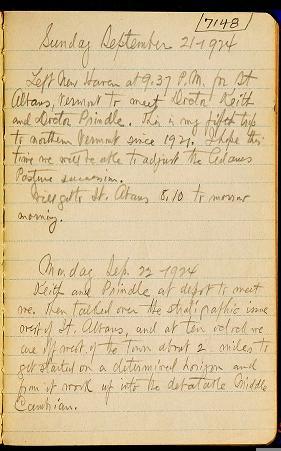 7148
Sunday September 21-1924
Left New Haven at 9.37 P.M. for St
Albans, Vermont to meet Doctor Keith
and Doctor Prindle. This is my fifth trip
to northern Vermont since 1921. I hope this
time we will be able to adjust the
Postune succession.
Will get to St. Albans 8.10 to morrow
morning.
Monday Sep. 22-1924
Keith and Prindle at depot to meet
me. Then talked over the stratigraphic issue
west of St. Albans, and at ten oclock we
are off west of the town about 2 miles to
get started on a determined horizon and
from it work up into the debatable Middle
Cambrian.